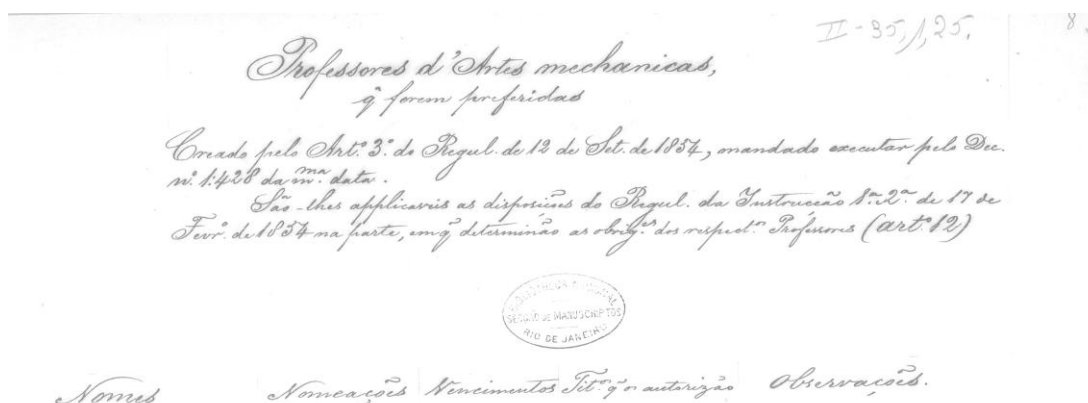 II-35,1,25.
8.
Professores d'Artes mechanicas,
q̃ forem preferidas
Creado pelo Art.º 3.º do Regul. de 12 de Set. de 1854, mandado executar pelo Dec.
nº 1:428 da m.ma data.
São-lhes applicaveis as disposiões do Regul. da Instrucção 1.ª 2.ª de 17 de
Fevr.º de 1854 na parte, em q̃ determinão as obrig.es dos respect.os Professores (art.º 12)
BIBLIOTHECA NACIONAL
SECÇÃO DE MANUSCRIPTOS
RIO DE JANEIRO
Nomes Nomeações Vencimentos Tit.os q̃ os autorizão Observações.